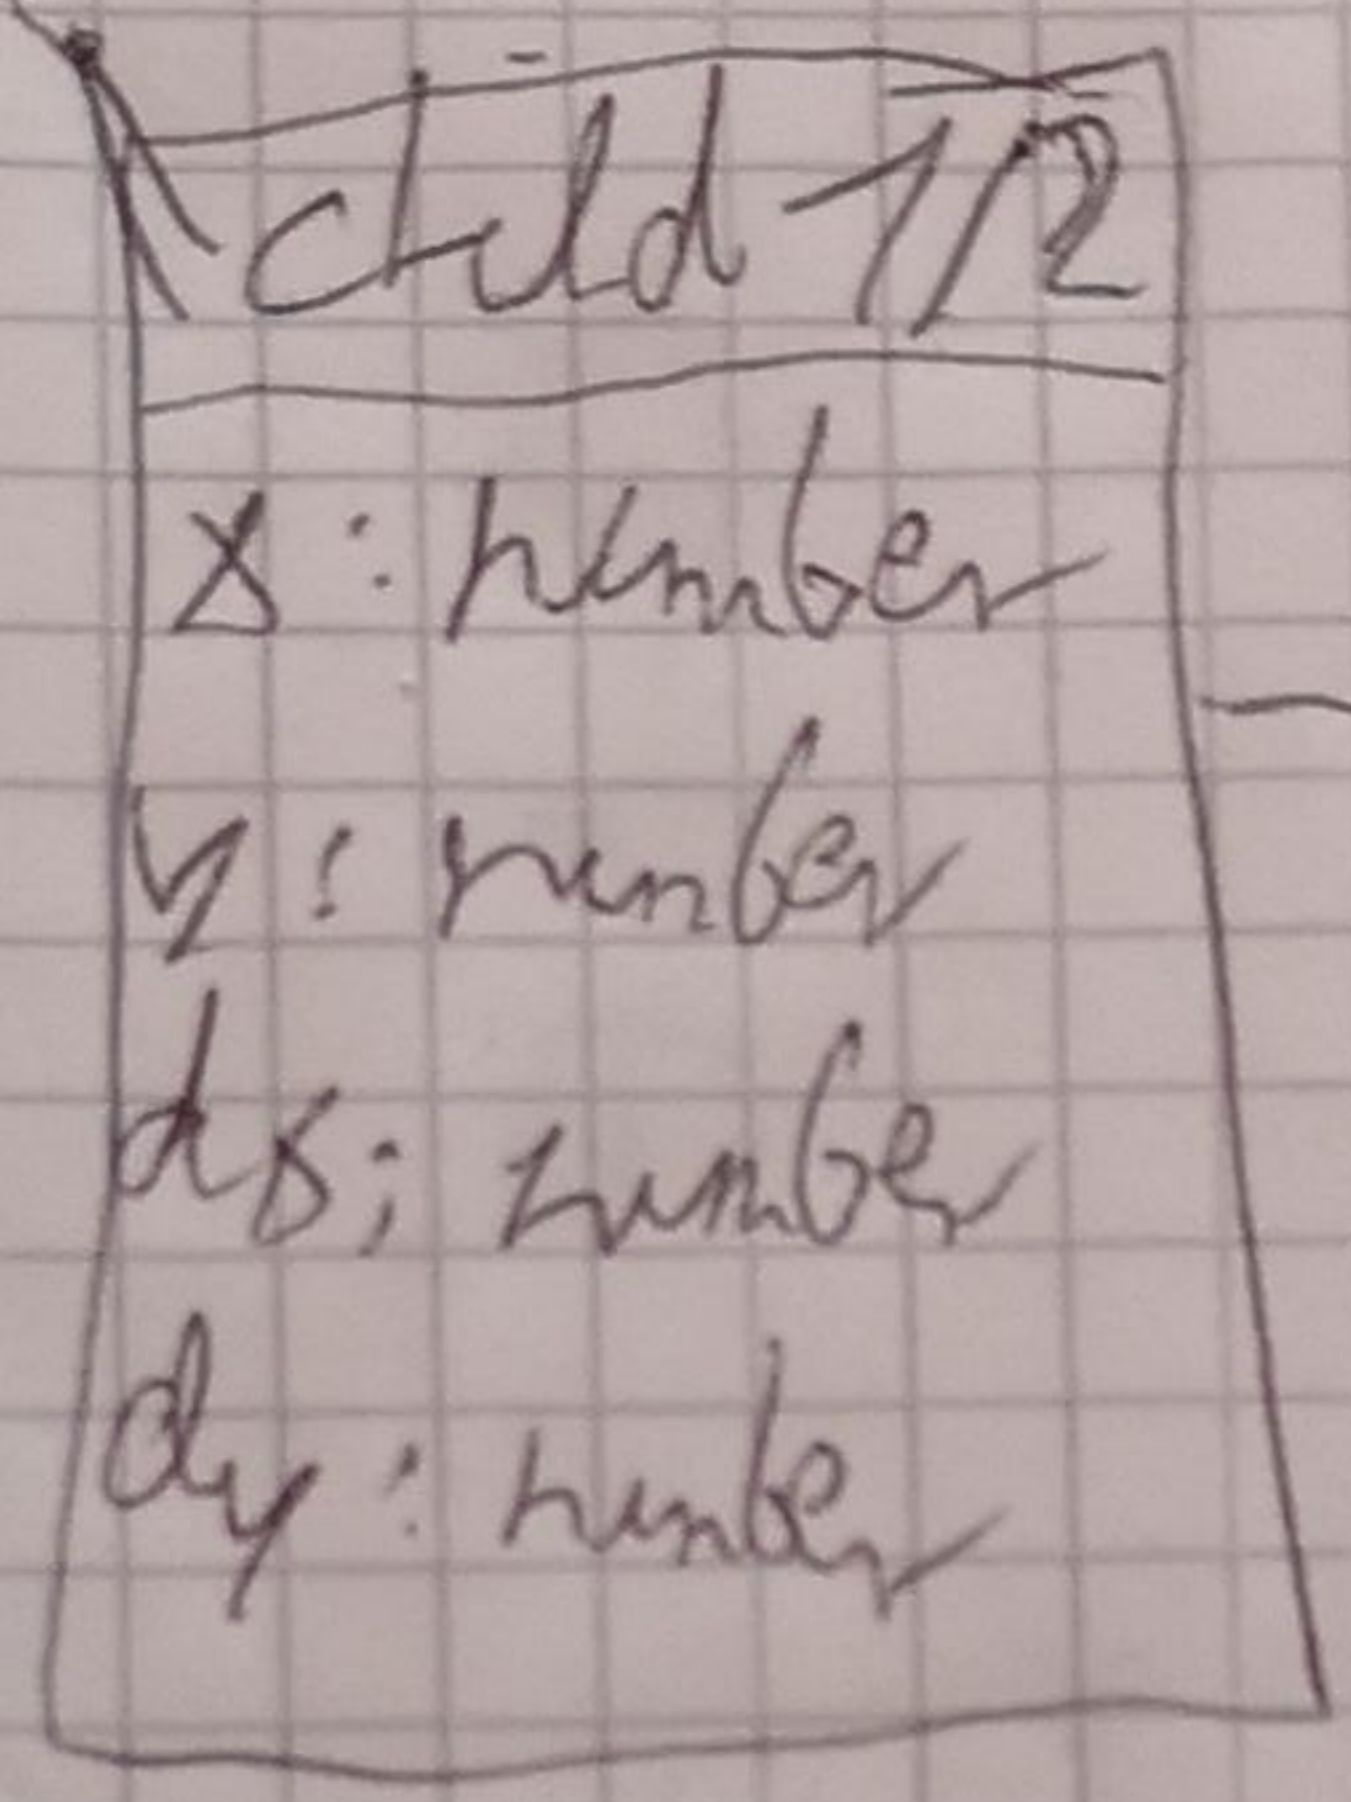 child 1/2
x : number
y : number
dx : number
dy : number